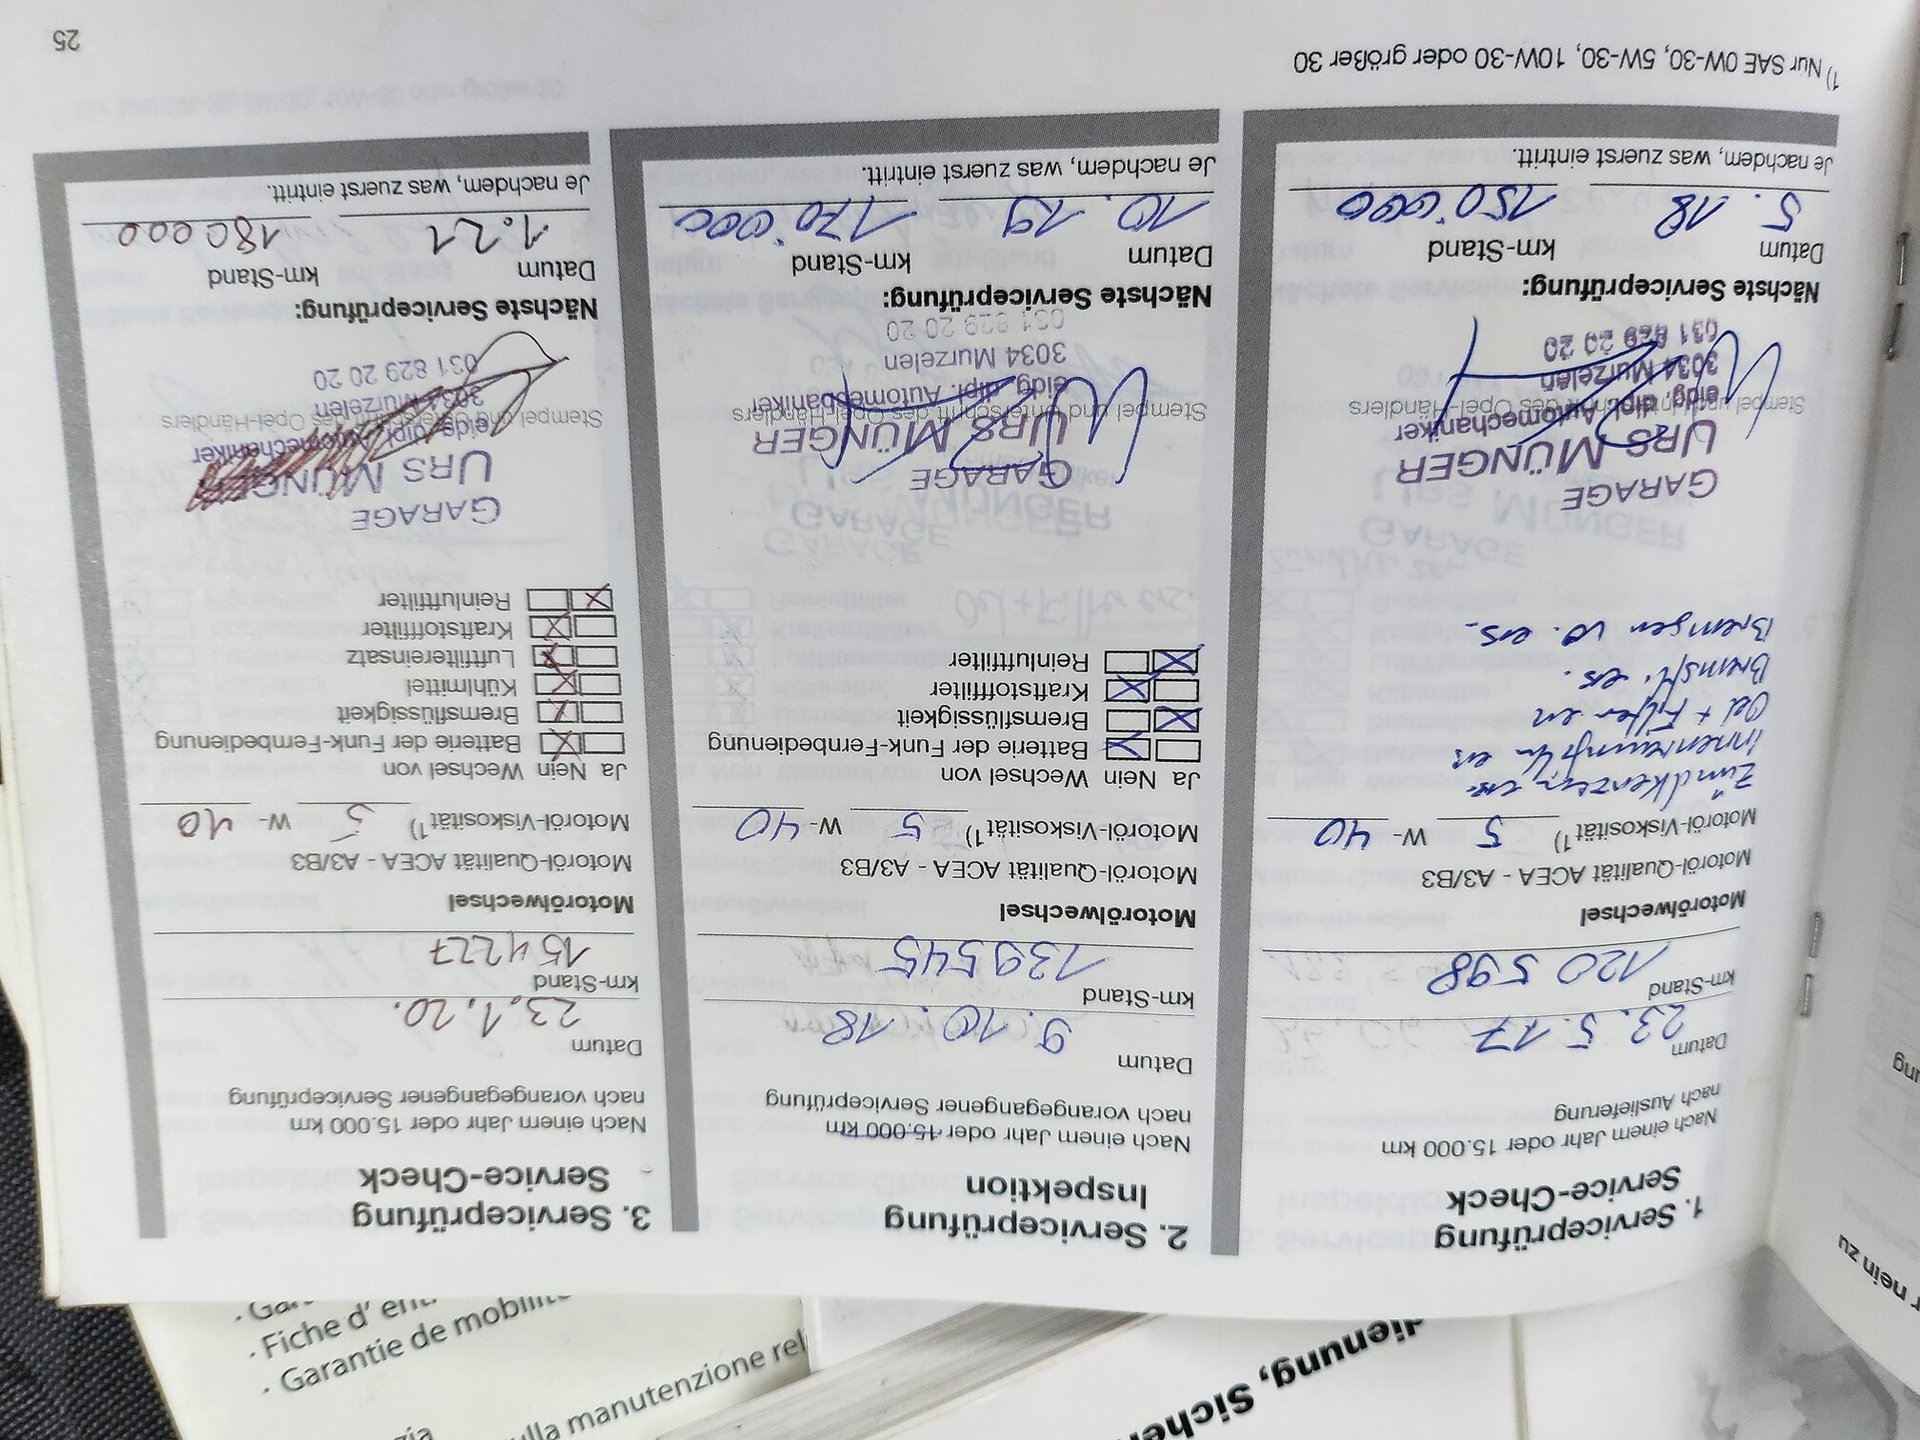 1. Serviceprüfung
Service-Check
Nach einem Jahr oder 15.000 km
nach Auslieferung
Datum
23. 5. 17
km-Stand
120 598
Motorölwechsel
Motoröl-Qualität ACEA - A3/B3
Motoröl-Viskosität 1) 5 W- 40
Zündkerzen ers.
Innenraumfilter ers
Oel + Filter ers
Bremsfl. ers.
Bremsen vo. ers.
GARAGE
URS MÜNGER
Stempel und Unterschrift des Opel-Händlers
eidg. dipl. Automechaniker
3034 Murzelen
031 829 20 20
Nächste Serviceprüfung:
Datum km-Stand
5. 18 150'000
Je nachdem, was zuerst eintritt.
1) Nur SAE 0W-30, 5W-30, 10W-30 oder größer 30
2. Serviceprüfung
Inspektion
Nach einem Jahr oder 15.000 km
nach vorangegangener Serviceprüfung
Datum
9. 10. 18
km-Stand
139545
Motorölwechsel
Motoröl-Qualität ACEA - A3/B3
Motoröl-Viskosität 1) 5 W- 40
Ja Nein Wechsel von
Batterie der Funk-Fernbedienung
Bremsflüssigkeit
Kraftstofffilter
Reinluftfilter
Oel + Filter ers.
GARAGE
URS MÜNGER
Stempel und Unterschrift des Opel-Händlers
eidg. dipl. Automechaniker
3034 Murzelen
031 829 20 20
Nächste Serviceprüfung:
Datum km-Stand
10. 19 170'000
Je nachdem, was zuerst eintritt.
3. Serviceprüfung
Service-Check
Nach einem Jahr oder 15.000 km
nach vorangegangener Serviceprüfung
Datum
23.1.20.
km-Stand
154227
Motorölwechsel
Motoröl-Qualität ACEA - A3/B3
Motoröl-Viskosität 1) 5 W- 40
Ja Nein Wechsel von
Batterie der Funk-Fernbedienung
Bremsflüssigkeit
Kühlmittel
Luftfiltereinsatz
Kraftstofffilter
Reinluftfilter
GARAGE
URS MÜNGER
eidg. dipl. Automechaniker
Stempel und Unterschrift des Opel-Händlers
3034 Murzelen
031 829 20 20
Nächste Serviceprüfung:
Datum km-Stand
1.21 180000
Je nachdem, was zuerst eintritt.
25
· Fiche d'
· Garantie de mobilité
manutenzione